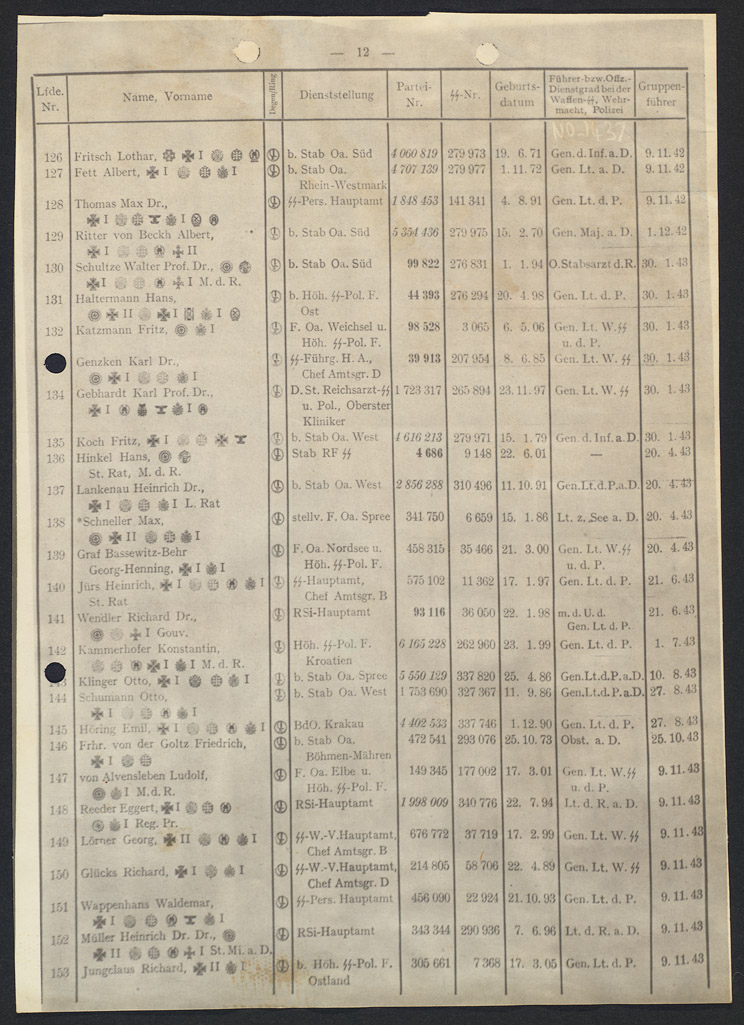 — 12 —
Lfde. Nr. Name, Vorname Degen/Ring Dienststellung Partei-Nr. ᛋᛋ-Nr. Geburts-datum Führer-bzw.Offz.-Dienstgrad bei der Waffen-ᛋᛋ, Wehr-macht, Polizei Gruppen-führer
126 Fritsch Lothar, I b. Stab Oa. Süd 4 060 819 279 973 19. 6. 71 Gen. d. Inf. a. D. 9. 11. 42
127 Fett Albert, I I b. Stab Oa. 4 707 139 279 977 1. 11. 72 Gen. Lt. a. D. 9. 11. 42
Rhein-Westmark
128 Thomas Max Dr., ᛋᛋ-Pers. Hauptamt 1 848 453 141 341 4. 8. 91 Gen. Lt. d. P. 9. 11. 42
I I
129 Ritter von Beckh Albert, b. Stab Oa. Süd 5 354 436 279 975 15. 2. 70 Gen. Maj. a. D. 1. 12. 42
I II
130 Schultze Walter Prof. Dr., b. Stab Oa. Süd 99 822 276 831 1. 1. 94 O.Stabsarzt d.R. 30. 1. 43
I I M. d. R.
131 Haltermann Hans, b. Höh. ᛋᛋ-Pol. F. 44 393 276 294 20. 4. 98 Gen. Lt. d. P. 30. 1. 43
II I I Ost
132 Katzmann Fritz, I F. Oa. Weichsel u. 98 528 3 065 6. 5. 06 Gen. Lt. W. ᛋᛋ 30. 1. 43
Höh. ᛋᛋ-Pol. F. u. d. P.
Genzken Karl Dr., ᛋᛋ-Führg. H. A., 39 913 207 954 8. 6. 85 Gen. Lt. W. ᛋᛋ 30. 1. 43
I I Chef Amtsgr. D
134 Gebhardt Karl Prof. Dr., D. St. Reichsarzt-ᛋᛋ 1 723 317 265 894 23. 11. 97 Gen. Lt. W. ᛋᛋ 30. 1. 43
I I u. Pol., Oberster
Kliniker
135 Koch Fritz, I b. Stab Oa. West 1 616 213 279 971 15. 1. 79 Gen. d. Inf. a. D. 30. 1. 43
136 Hinkel Hans, Stab RF ᛋᛋ 4 686 9 148 22. 6. 01 — 20. 4. 43
St. Rat, M. d. R.
137 Lankenau Heinrich Dr., b. Stab Oa. West 2 856 288 310 496 11. 10. 91 Gen.Lt.d.P.a.D. 20. 4. 43
I I L. Rat
138 *Schneller Max, stellv. F. Oa. Spree 341 750 6 659 15. 1. 86 Lt. z. See a. D. 20. 4. 43
II I
139 Graf Bassewitz-Behr F. Oa. Nordsee u. 458 315 35 466 21. 3. 00 Gen. Lt. W. ᛋᛋ 20. 4. 43
Georg-Henning, I I Höh. ᛋᛋ-Pol. F. u. d. P.
140 Jürs Heinrich, I I ᛋᛋ-Hauptamt, 575 102 11 362 17. 1. 97 Gen. Lt. d. P. 21. 6. 43
St. Rat Chef Amtsgr. B
141 Wendler Richard Dr., RSi-Hauptamt 93 116 36 050 22. 1. 98 m. d. U. d. 21. 6. 43
I Gouv. Gen. Lt. d. P.
142 Kammerhofer Konstantin, Höh. ᛋᛋ-Pol. F. 6 165 228 262 960 23. 1. 99 Gen. Lt. d. P. 1. 7. 43
I I M. d. R. Kroatien
143 Klinger Otto, I I b. Stab Oa. Spree 5 550 129 337 820 25. 4. 86 Gen.Lt.d.P.a.D. 10. 8. 43
144 Schumann Otto, b. Stab Oa. West 1 753 690 327 367 11. 9. 86 Gen.Lt.d.P.a.D. 27. 8. 43
I I
145 Höring Emil, I I BdO. Krakau 4 402 533 337 746 1. 12. 90 Gen. Lt. d. P. 27. 8. 43
146 Frhr. von der Goltz Friedrich, b. Stab Oa. 472 541 293 076 25. 10. 73 Obst. a. D. 25. 10. 43
I Böhmen-Mähren
147 von Alvensleben Ludolf, F. Oa. Elbe u. 149 345 177 002 17. 3. 01 Gen. Lt. W. ᛋᛋ 9. 11. 43
I M. d. R. Höh. ᛋᛋ-Pol. F. u. d. P.
148 Reeder Eggert, I RSi-Hauptamt 1 998 009 340 776 22. 7. 94 Lt. d. R. a. D. 9. 11. 43
I Reg. Pr.
149 Lörner Georg, II I ᛋᛋ-W.-V.Hauptamt, 676 772 37 719 17. 2. 99 Gen. Lt. W. ᛋᛋ 9. 11. 43
Chef Amtsgr. B
150 Glücks Richard, I I ᛋᛋ-W.-V.Hauptamt, 214 805 58 706 22. 4. 89 Gen. Lt. W. ᛋᛋ 9. 11. 43
Chef Amtsgr. D
151 Wappenhans Waldemar, ᛋᛋ-Pers. Hauptamt 456 090 22 924 21. 10. 93 Gen. Lt. d. P. 9. 11. 43
I I
152 Müller Heinrich Dr. Dr., RSi-Hauptamt 343 344 290 936 7. 6. 96 Lt. d. R. a. D. 9. 11. 43
II I St. Mi. a. D.
153 Jungclaus Richard, II I b. Höh. ᛋᛋ-Pol. F. 305 661 7 368 17. 3. 05 Gen. Lt. d. P. 9. 11. 43
Ostland